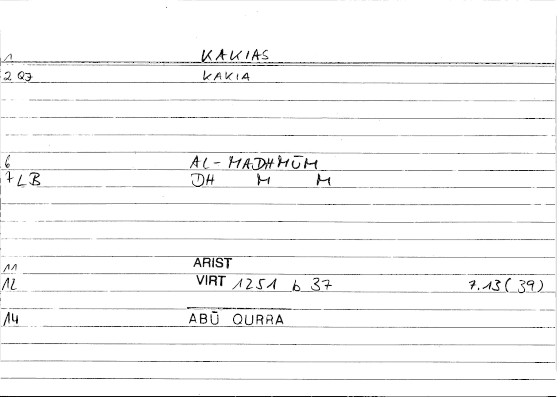 1 KAKIAS
2 Q7 KAKIA
6 AL-MADHMŪM
7 LB DH M M
11 ARIST
12 VIRT 1251 b 37 7.13(39)
14 ABŪ QURRA